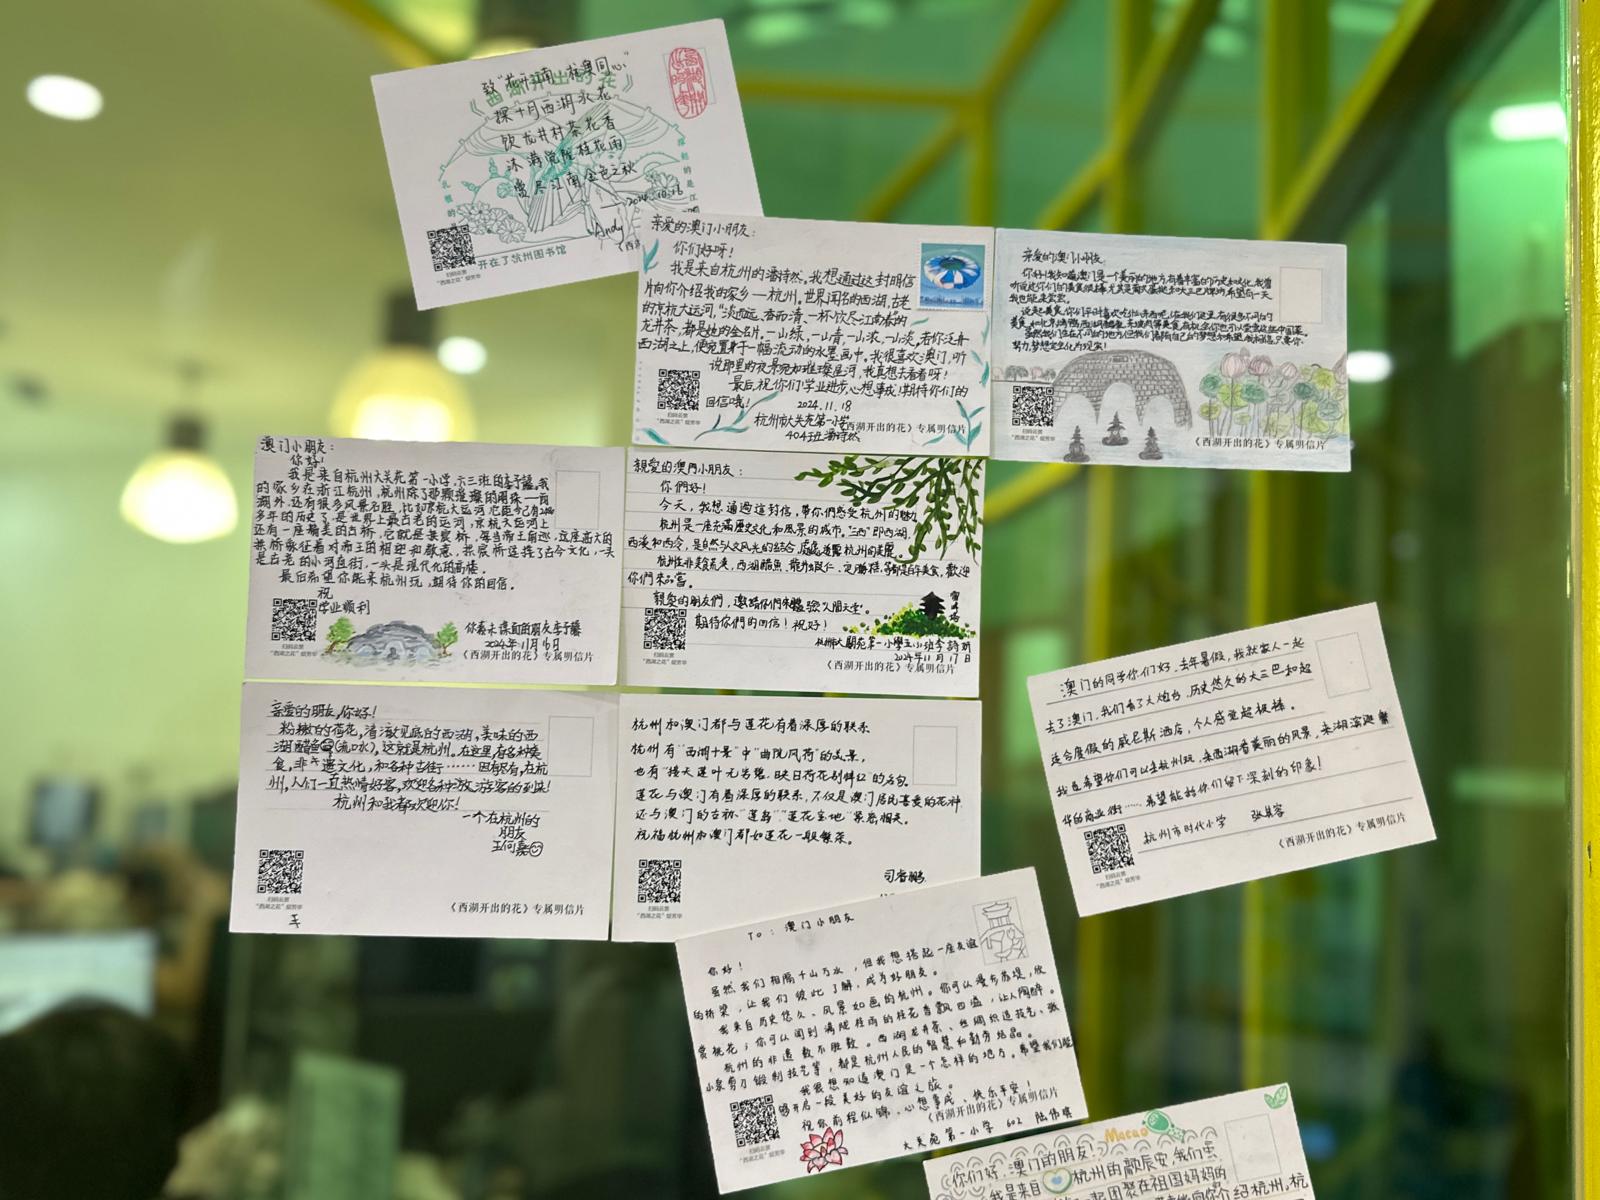 致"花开江南 杭澳同心"
探十月西湖水花
饮龙井村茶花香
沐满觉陇桂花雨
赏尽江南金色之秋
2024.10.16
Andy
开在了杭州图书馆
扫码云赏
"西湖之花"绽芳华
亲爱的澳门小朋友:
你们好呀!
我是来自杭州的潘诗然。我想通过这封明信
片向你介绍我的家乡——杭州。世界闻名的西湖,古老
的京杭大运河,"淡而远,香而清,一杯饮尽江南春"的
龙井茶,都是她的金名片。一山绿,一山青,一山浓,一山淡。若你泛舟
西湖之上,便宛置身于一幅流动的水墨画中。我很喜欢澳门,听
说那里的夜景宛如璀璨星河,我真想去看看呀!
最后,祝你们学业进步,心想事成!期待你们的
回信哦!
2024.11.18
杭州市大关苑第一小学
404班潘诗然
扫码云赏
"西湖之花"绽芳华
《西湖开出的花》专属明信片
亲爱的澳门小朋友:
你好!我知道澳门是一个美丽的地方,有着丰富的历史和文化,我曾
听说过你们的美食很棒,尤其是葡式蛋挞和大三巴牌坊,希望有一天,
我也能来尝尝。
说起美食,你们平时喜欢吃什么东西呢,在我们这里,有很多不同的
努力,梦想定会化为现实!
扫码云赏
"西湖之花"绽芳华
《西湖开出的花》专属明信片
澳门小朋友:
你好!
我是来自杭州大关苑第一小学,六三班的李予馨。我
的家乡在浙江杭州,杭州除了那颗璀璨的明珠——西
湖外,还有很多风景名胜,比如京杭大运河,它距今已有2500
多年的历史了,是世界上最古老的运河,京杭大运河上
还有一座精美的古桥,它就是拱宸桥,每当帝王南巡,这座高大的
拱桥象征着对帝王的相迎和敬意,拱宸桥连接了古今文化,一头
是古老的小河直街,一头是现代化的高楼。
最后希望你能来杭州玩,期待你的回信。
祝
学业顺利
你素未谋面的朋友李予馨
2024年11月16日
扫码云赏
"西湖之花"绽芳华
《西湖开出的花》专属明信片
親愛的澳門小朋友:
你們好!
今天,我想通過這封信,帶你們感受杭州的魅力
杭州是一座充滿歷史文化和風景的城市,"三西"即西湖,
西溪和西泠,是自然與人文風光的結合,處處透露杭州的美麗。
杭州也非美食荒漠,西湖醋魚、龍井蝦仁、定勝糕,等都是百年美食,歡迎
你們來品嘗。
親愛的朋友們,邀請你們來體驗"人間天堂"。
期待你們的回信!祝好!
雷峰塔
2024年11月17日
扫码云赏
"西湖之花"绽芳华
《西湖开出的花》专属明信片
亲爱的朋友,你好!
粉嫩的荷花,清澈见底的西湖,美味的西
湖醋鱼(流口水),这就是杭州。在这里,有各种美
食,非遗文化,和各种古街……因有尽有,在杭
州,人们一直热情好客,欢迎各种游客的到来!
杭州和我都欢迎你!
一个在杭州的
朋友
王何嘉
扫码云赏
"西湖之花"绽芳华
《西湖开出的花》专属明信片
杭州和澳门都与莲花有着深厚的联系
杭州有"西湖十景"中"曲院风荷"的美景,
也有"接天莲叶无穷碧,映日荷花别样红"的名句。
莲花与澳门有着深厚的联系,不仅是澳门居民喜爱的花种
还与澳门的古称"莲岛""莲花宝地"紧密相关。
祝福杭州和澳门都如莲花一般繁荣。
司睿鹏
扫码云赏
"西湖之花"绽芳华
澳门的同学你们好,去年暑假,我就家人一起
去了澳门,我们看了大炮台、历史悠久的大三巴和超
适合度假的威尼斯酒店,个人感觉超极棒。
我也希望你们可以去杭州玩,来西湖看美丽的风景,来湖滨逛繁
华的商业街……希望能给你们留下深刻的印象!
杭州市时代小学
扫码云赏
"西湖之花"绽芳华
《西湖开出的花》专属明信片
TO:澳门小朋友
你好!
虽然我们相隔千山万水,但我想搭起一座友谊
的桥梁,让我们彼此了解,成为好朋友。
我来自历史悠久、风景如画的杭州。你可以漫步苏堤,欣
赏桃花;你可以闻到满陇桂雨的桂花香飘四溢,让人陶醉。
杭州的非遗数不胜数。西湖龙井茶、丝绸织造技艺、张
小泉剪刀锻制技艺等,都是杭州人民的智慧和勤劳结晶。
我很想知道澳门是一个怎样的地方。希望我们能
够开启一段美好的友谊之旅。
祝你前程似锦、心想事成、快乐平安!
《西湖开出的花》专属明信片
大关苑第一小学 602 陆伟
扫码云赏
"西湖之花"绽芳华
Macao
你们好,澳门的朋友!
我是来自杭州的颜辰安,我们虽
起团聚在祖国妈妈的
你介绍杭州,杭